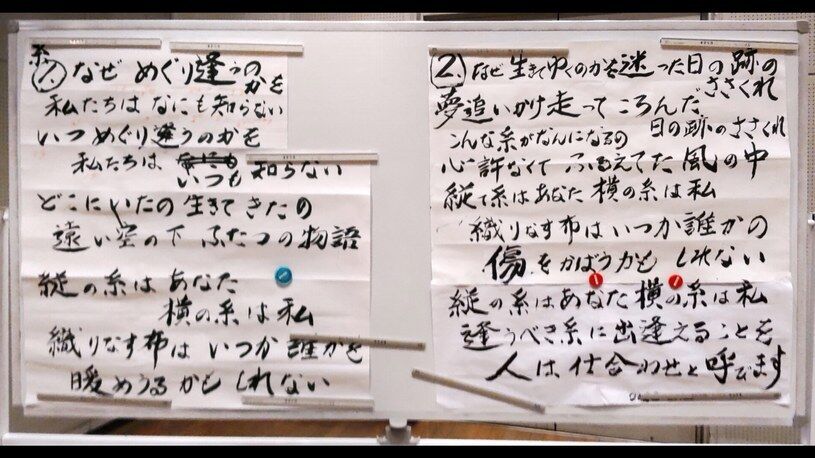 糸
1. なぜ めぐり逢うの
かを
私たちは なにも知らない
いつめぐり逢うのかを
私たちは いつも 知らない
どこにいたの 生きてきたの
遠い空の下 ふたつの物語
縦の糸は あなた
横の糸は私
織りなす布は いつか誰かを
暖めうるかもしれない
2. なぜ 生きてゆくのかを迷った日の跡の
ささくれ
夢追いかけ走って ころんだ
日の跡のささくれ
こんな糸がなんになるの
心許なくて ふるえてた風の中
縦て糸はあなた 横の糸は私
織りなす布は いつか誰かの
傷をかばうかもしれない
縦の糸はあなた 横の糸は私
逢うべき糸に 出逢えることを
人は 仕合わせと呼びます